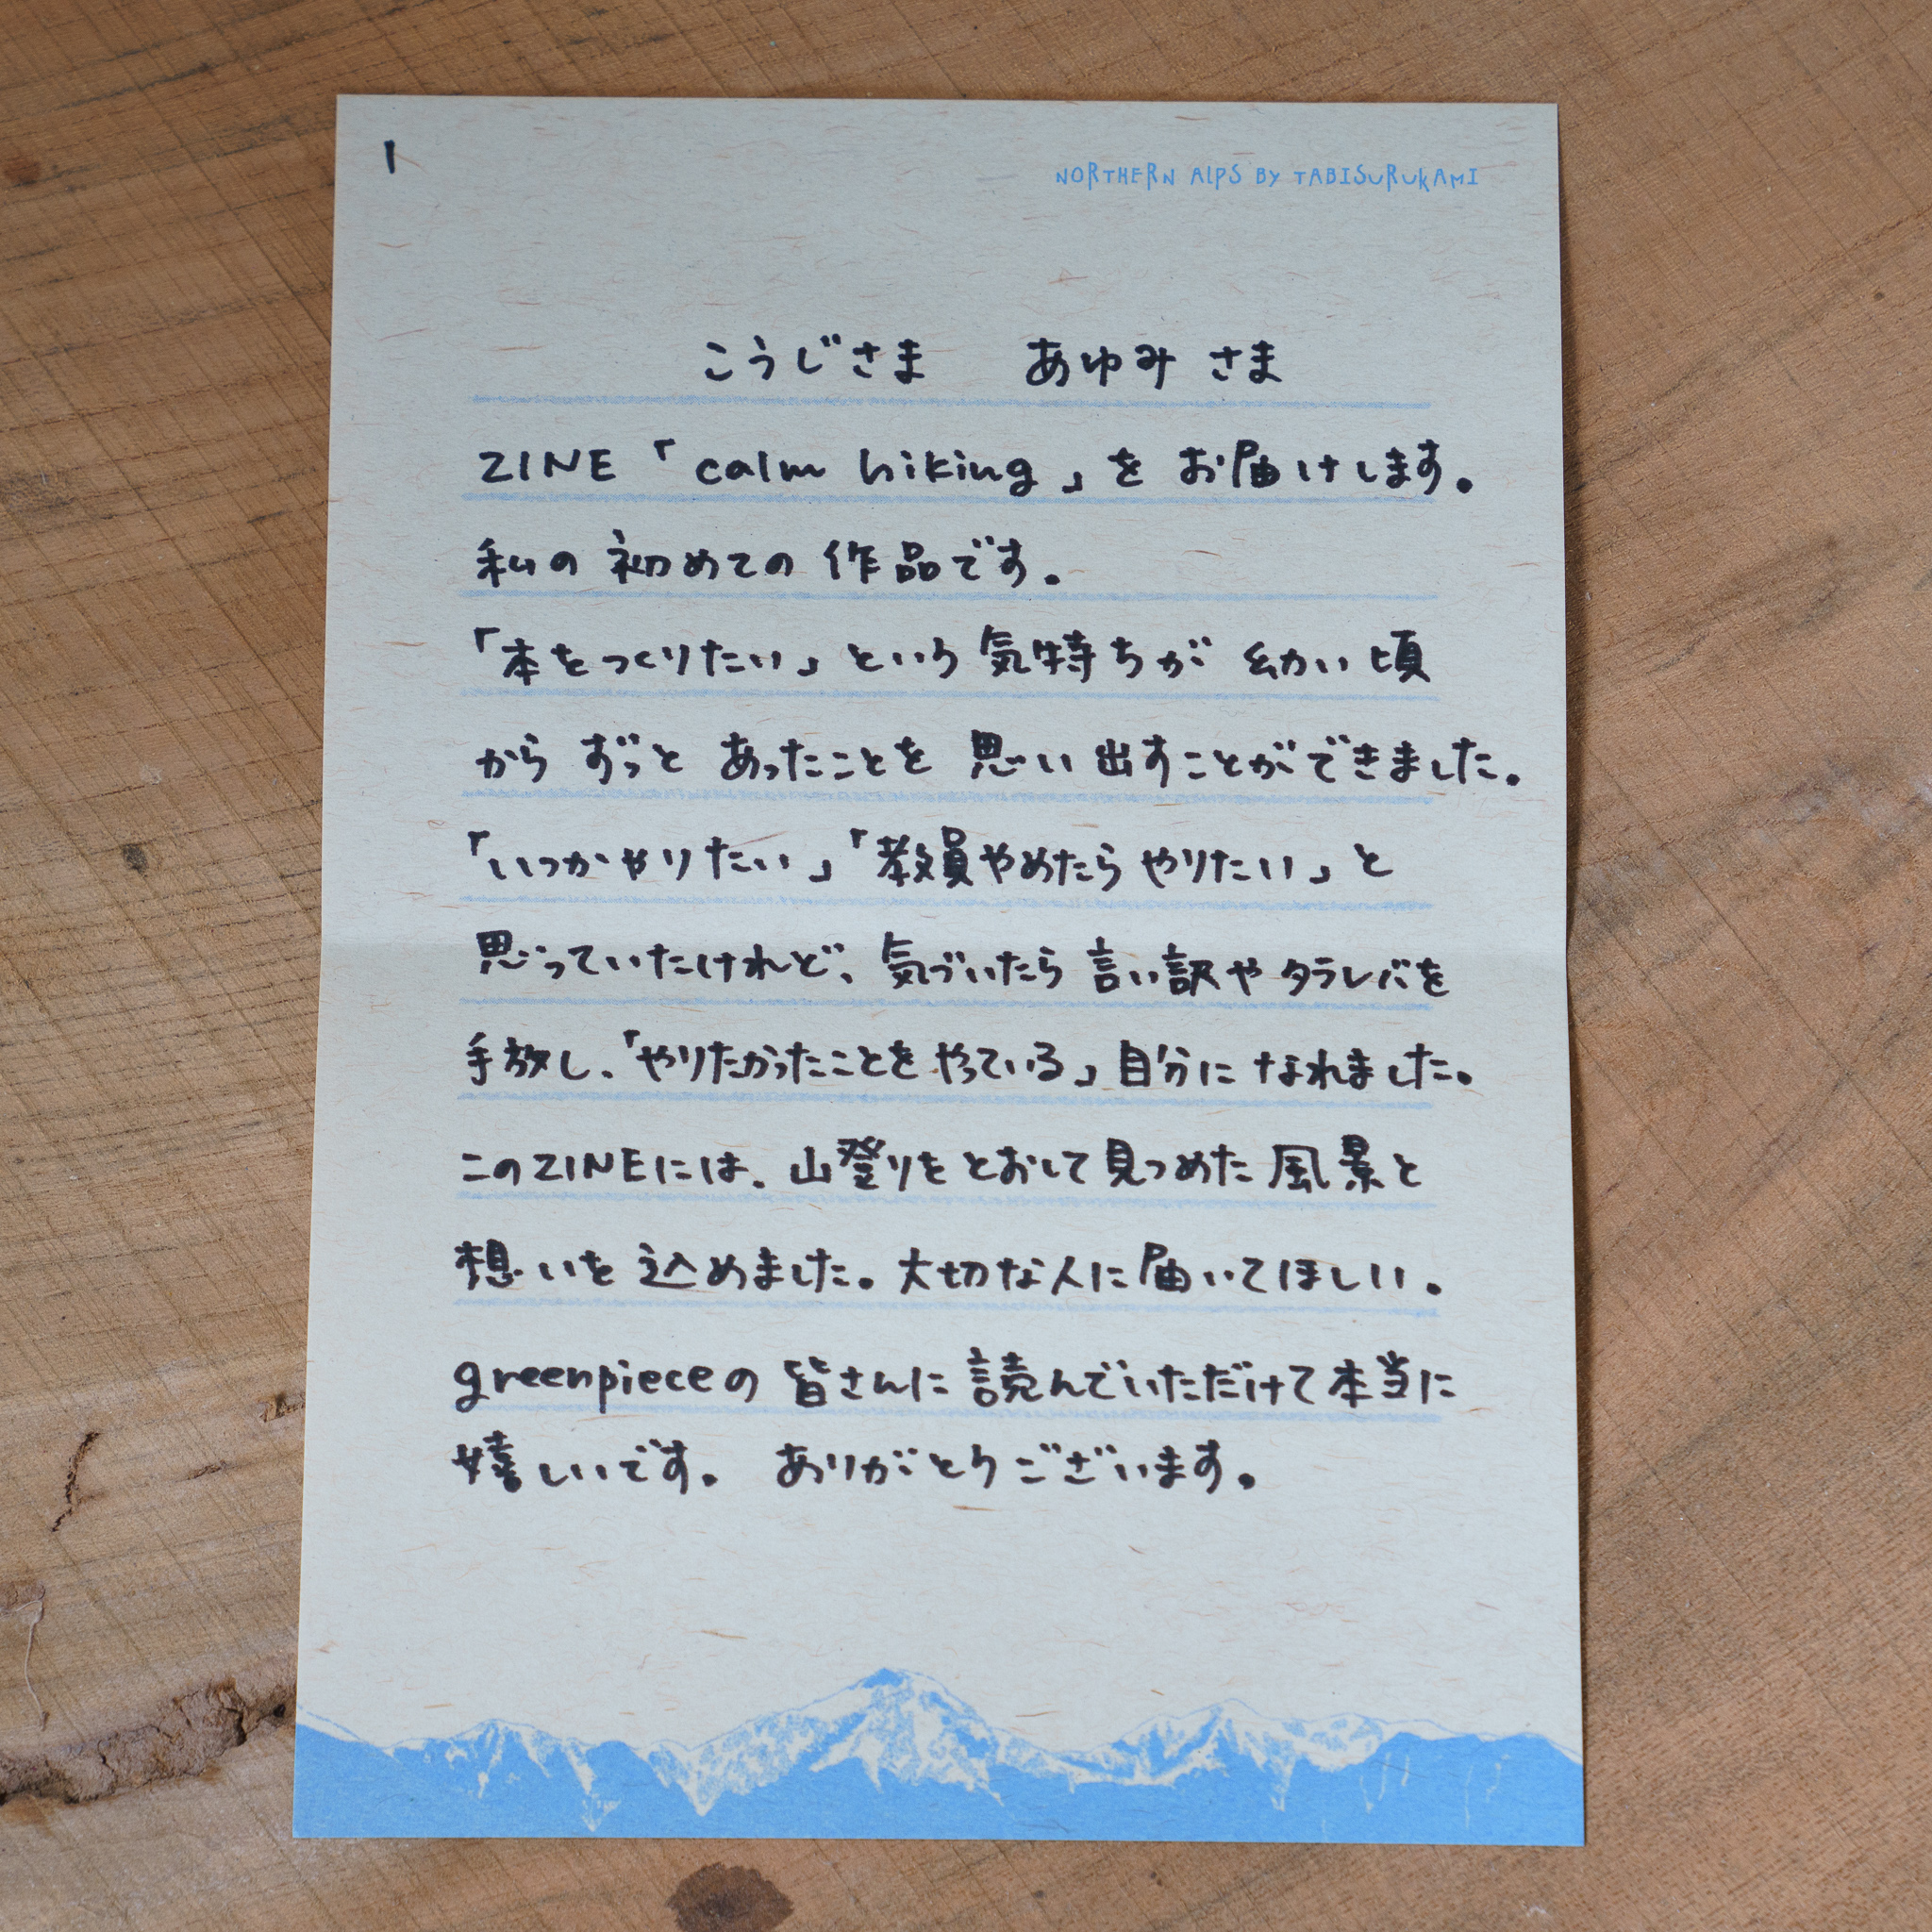 1
NORTHERN ALPS BY TABISURUKAMI
こうじさま あゆみさま
ZINE「calm hiking」を お届けします。
私の 初めての 作品です。
「本をつくりたい」という 気持ちが 幼い頃
から ずっと あったことを 思い出すことができました。
「いつかやりたい」「教員やめたら やりたい」と
思っていたけれど、気づいたら 言い訳や タラレバを
手放し、「やりたかったことを やっている」自分に なれました。
このZINEには、山登りを とおして 見つめた 風景と
想いを 込めました。大切な人に 届いてほしい。
greenpieceの 皆さんに 読んでいただけて 本当に
嬉しいです。 ありがとうございます。